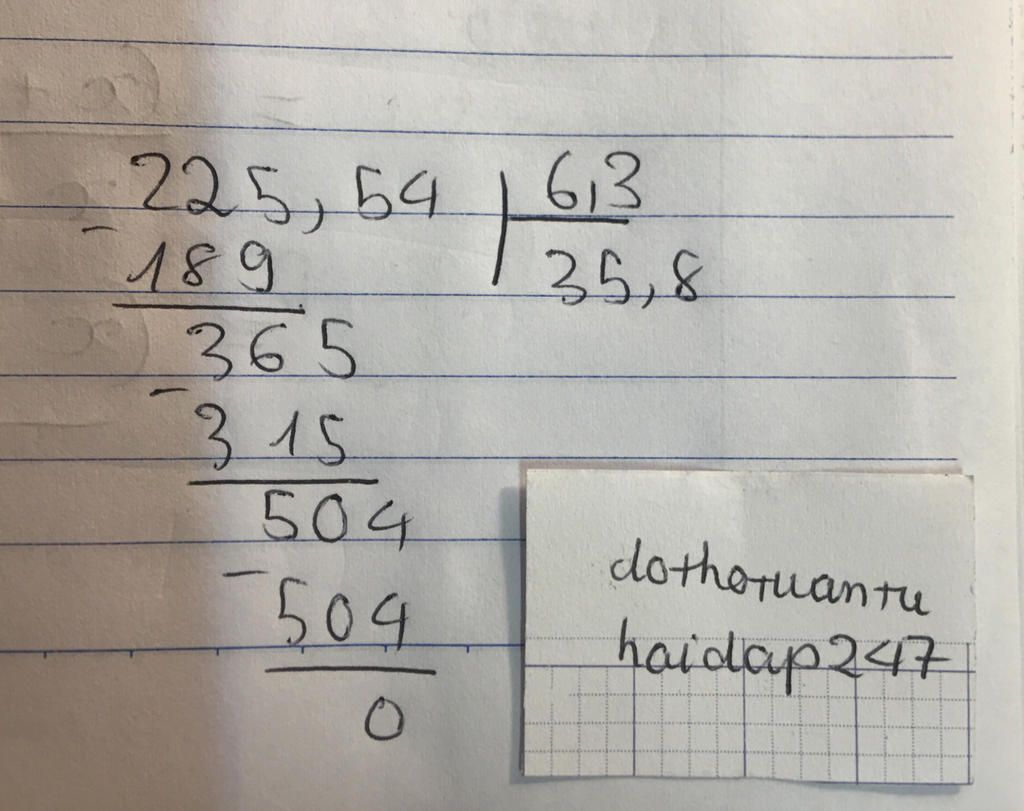 225,54 6,3
- 189 35,8
365
- 315
504
- 504
0
dothotuantu
haidap247